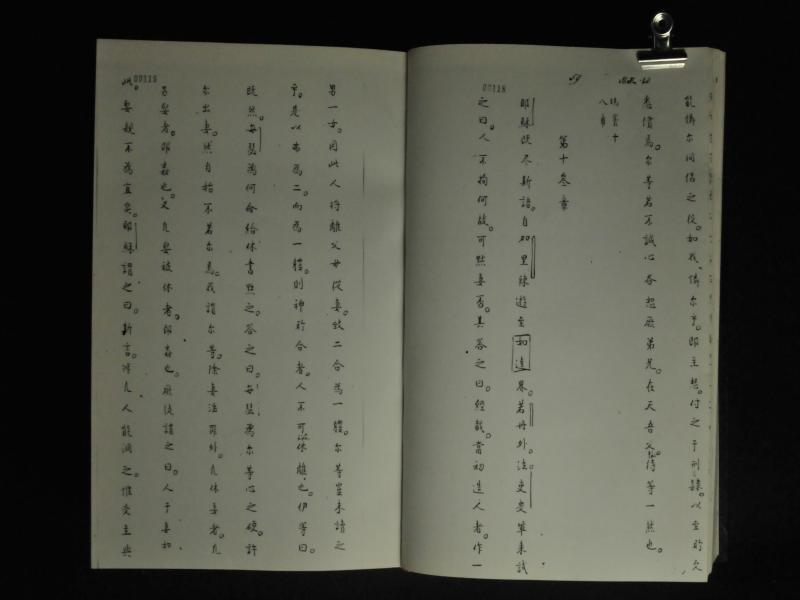 00118
能憐尔同侣之役。如我憐尔乎。即主怒。付之于刑隸。以至所欠
悉償焉。尔等若不誠心各恕厥弟兄。在天吾父待等一然也。
第十叁章
耶穌既尽斯語。自加里陳遊至如達界。若丹外。法吏輩来試
之曰。人不拘何故。可黜妻否。其荅之曰。經載。當初造人者。作一
00119
男一女。因此人将離父母從妻。致二合為一軆。尔等豈未請之
乎。是以弗為二而為一軆。則神所合者。人不可以休離也。伊等曰。
既然。每瑟為何命給休書黜之。荅之曰。每瑟為尔等心之硬。許
尔出妻。然自始不若尔焉。我謂尔等。除妻滛罪外。凡休妻者。凡
另娶者。即姦也。又凡娶被休者。即姦也。厥徒謂之曰。人于妻如
此。娶親不為宜矣。耶穌謂之曰。斯言。凡人能涵之。惟受主典